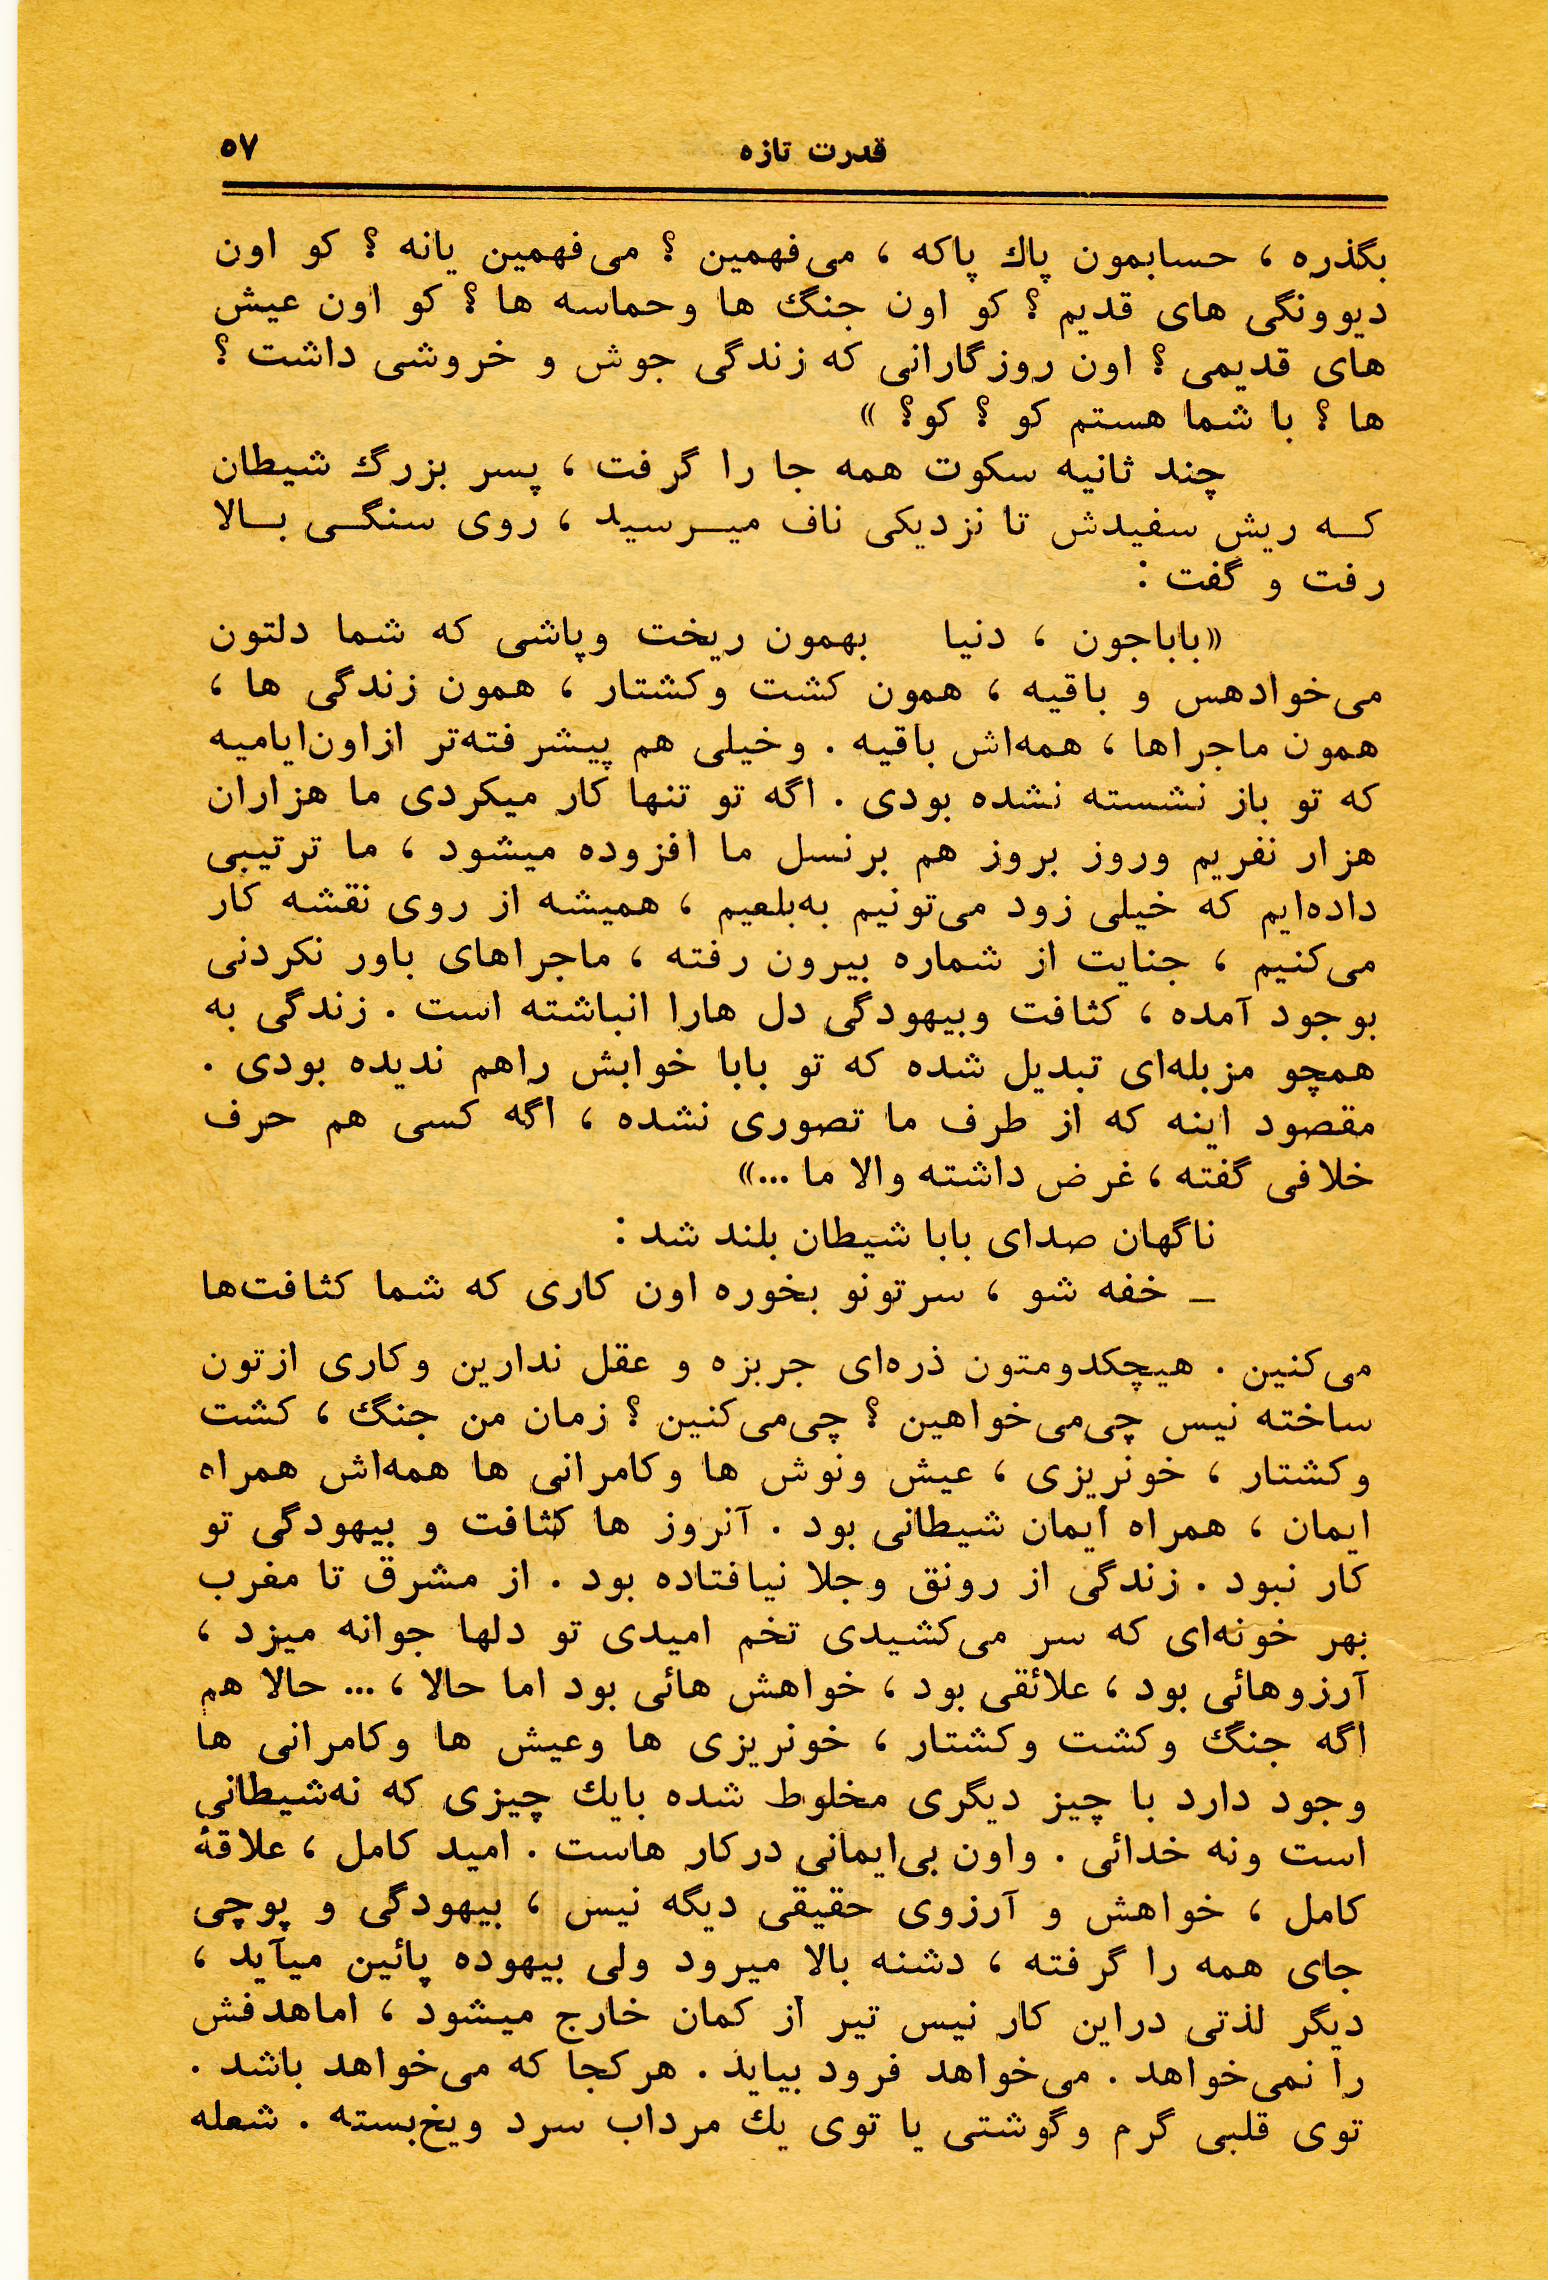 قدرت تازه ۵۷
بگذره ، حسابمون پاك پاكه ، می‌فهمین ؟ می‌فهمین یانه ؟ كو اون
دیوونگی های قدیم ؟ كو اون جنگ ها وحماسه ها ؟ كو اون عیش
های قدیمی ؟ اون روزگارانی كه زندگی جوش و خروشی داشت ؟
ها ؟ با شما هستم كو ؟ كو؟ »
چند ثانیه سكوت همه جا را گرفت ، پسر بزرگ شیطان
كــه ریش سفیدش تا نزدیكی ناف میــرسید ، روی سنگــی بــالا
رفت و گفت :
«باباجون ، دنیا بهمون ریخت وپاشی كه شما دلتون
می‌خوادهس و باقیه ، همون كشت وكشتار ، همون زندگی ها ،
همون ماجراها ، همه‌اش باقیه . وخیلی هم پیشرفته‌تر ازاون‌ایامیه
كه تو باز نشسته نشده بودی . اگه تو تنها كار میكردی ما هزاران
هزار نفریم وروز بروز هم برنسل ما افزوده میشود ، ما ترتیبی
داده‌ایم كه خیلی زود می‌تونیم به‌بلعیم ، همیشه از روی نقشه كار
می‌كنیم ، جنایت از شماره بیرون رفته ، ماجراهای باور نكردنی
بوجود آمده ، كثافت وبیهودگی دل هارا انباشته است . زندگی به
همچو مزبله‌ای تبدیل شده كه تو بابا خوابش راهم ندیده بودی .
مقصود اینه كه از طرف ما تصوری نشده ، اگه كسی هم حرف
خلافی گفته ، غرض داشته والا ما ...»
ناگهان صدای بابا شیطان بلند شد :
ــ خفه شو ، سرتونو بخوره اون كاری كه شما كثافت‌ها
می‌كنین . هیچكدومتون ذره‌ای جربزه و عقل ندارین وكاری ازتون
ساخته نیس چی‌می‌خواهین ؟ چی‌می‌كنین ؟ زمان من جنگ ، كشت
وكشتار ، خونریزی ، عیش ونوش ها وكامرانی ها همه‌اش همراه
ایمان ، همراه ایمان شیطانی بود . آنروز ها كثافت و بیهودگی تو
كار نبود . زندگی از رونق وجلا نیافتاده بود . از مشرق تا مغرب
بهر خونه‌ای كه سر می‌كشیدی تخم امیدی تو دلها جوانه میزد ،
آرزوهائی بود ، علائقی بود ، خواهش هائی بود اما حالا ، ... حالا هم
اگه جنگ وكشت وكشتار ، خونریزی ها وعیش ها وكامرانی ها
وجود دارد با چیز دیگری مخلوط شده بایك چیزی كه نه‌شیطانی
است ونه خدائی . واون بی‌ایمانی دركار هاست . امید كامل ، علاقهٔ
كامل ، خواهش و آرزوی حقیقی دیگه نیس ، بیهودگی و پوچی
جای همه را گرفته ، دشنه بالا میرود ولی بیهوده پائین میآید ،
دیگر لذتی دراین كار نیس تیر از كمان خارج میشود ، اماهدفش
را نمی‌خواهد . می‌خواهد فرود بیاید . هركجا كه می‌خواهد باشد .
توی قلبی گرم وگوشتی یا توی یك مرداب سرد ویخ‌بسته . شعله